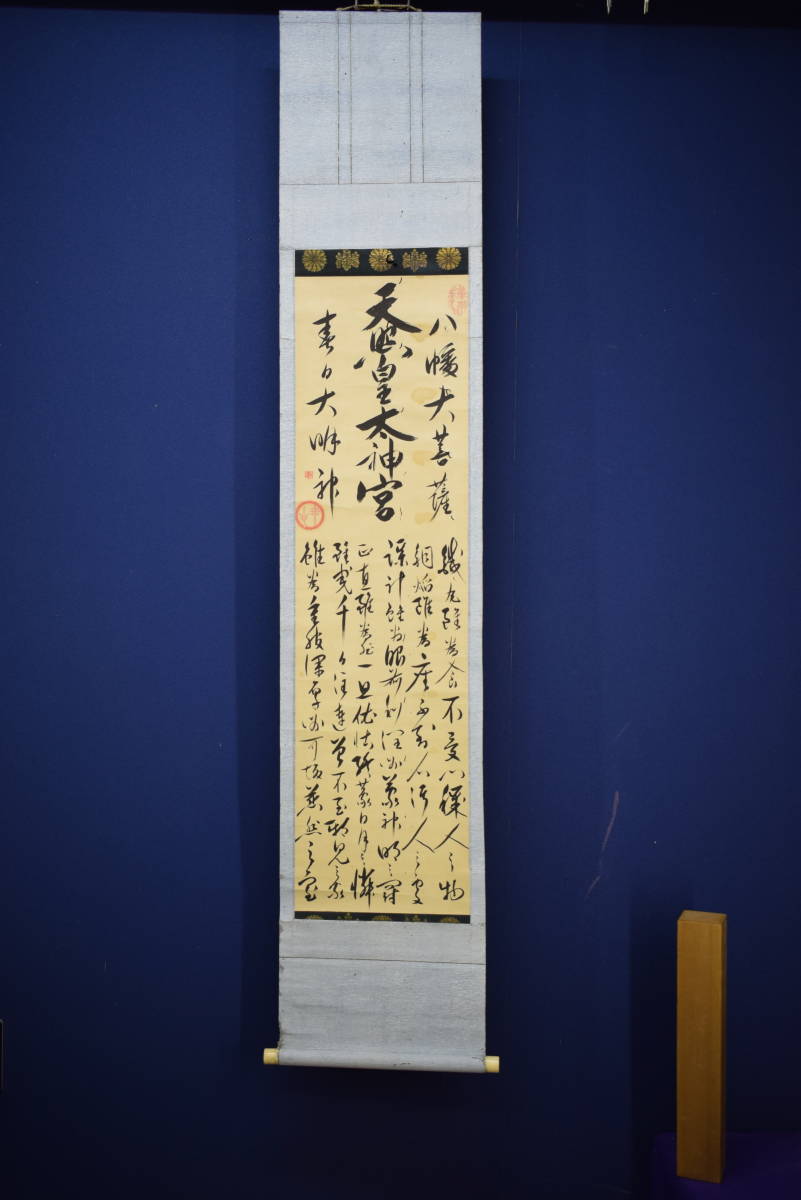 八幡大菩薩
天照皇太神宮
春日大明神
鐵丸雖為食不受心穢人之物
銅焔雖為座不到心濁人之處
謀計雖為眼前利潤必蒙神明之罰
正直雖非一旦依怙終蒙日月之憐
雖曳千日注連曽不至邪見之家
雖為重服深厚必可趣慈悲之室